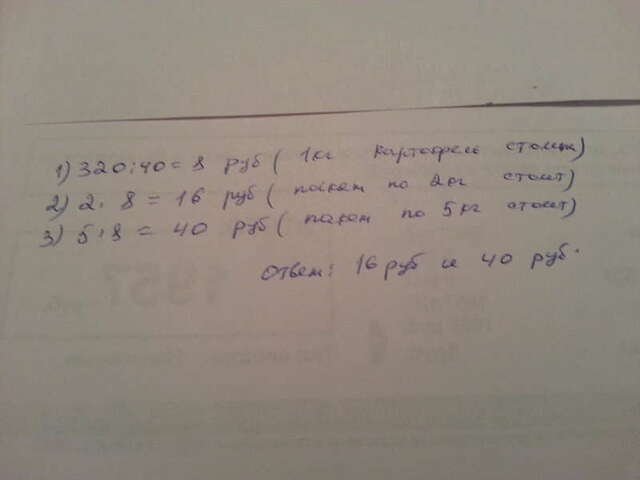 1) 320:40=8 руб ( 1кг картофель стоит)
2) 2 · 8 = 16 руб ( пакет по 2кг стоит)
3) 5·8 = 40 руб ( пакет по 5кг стоит)
Ответ: 16 руб и 40 руб.
1957